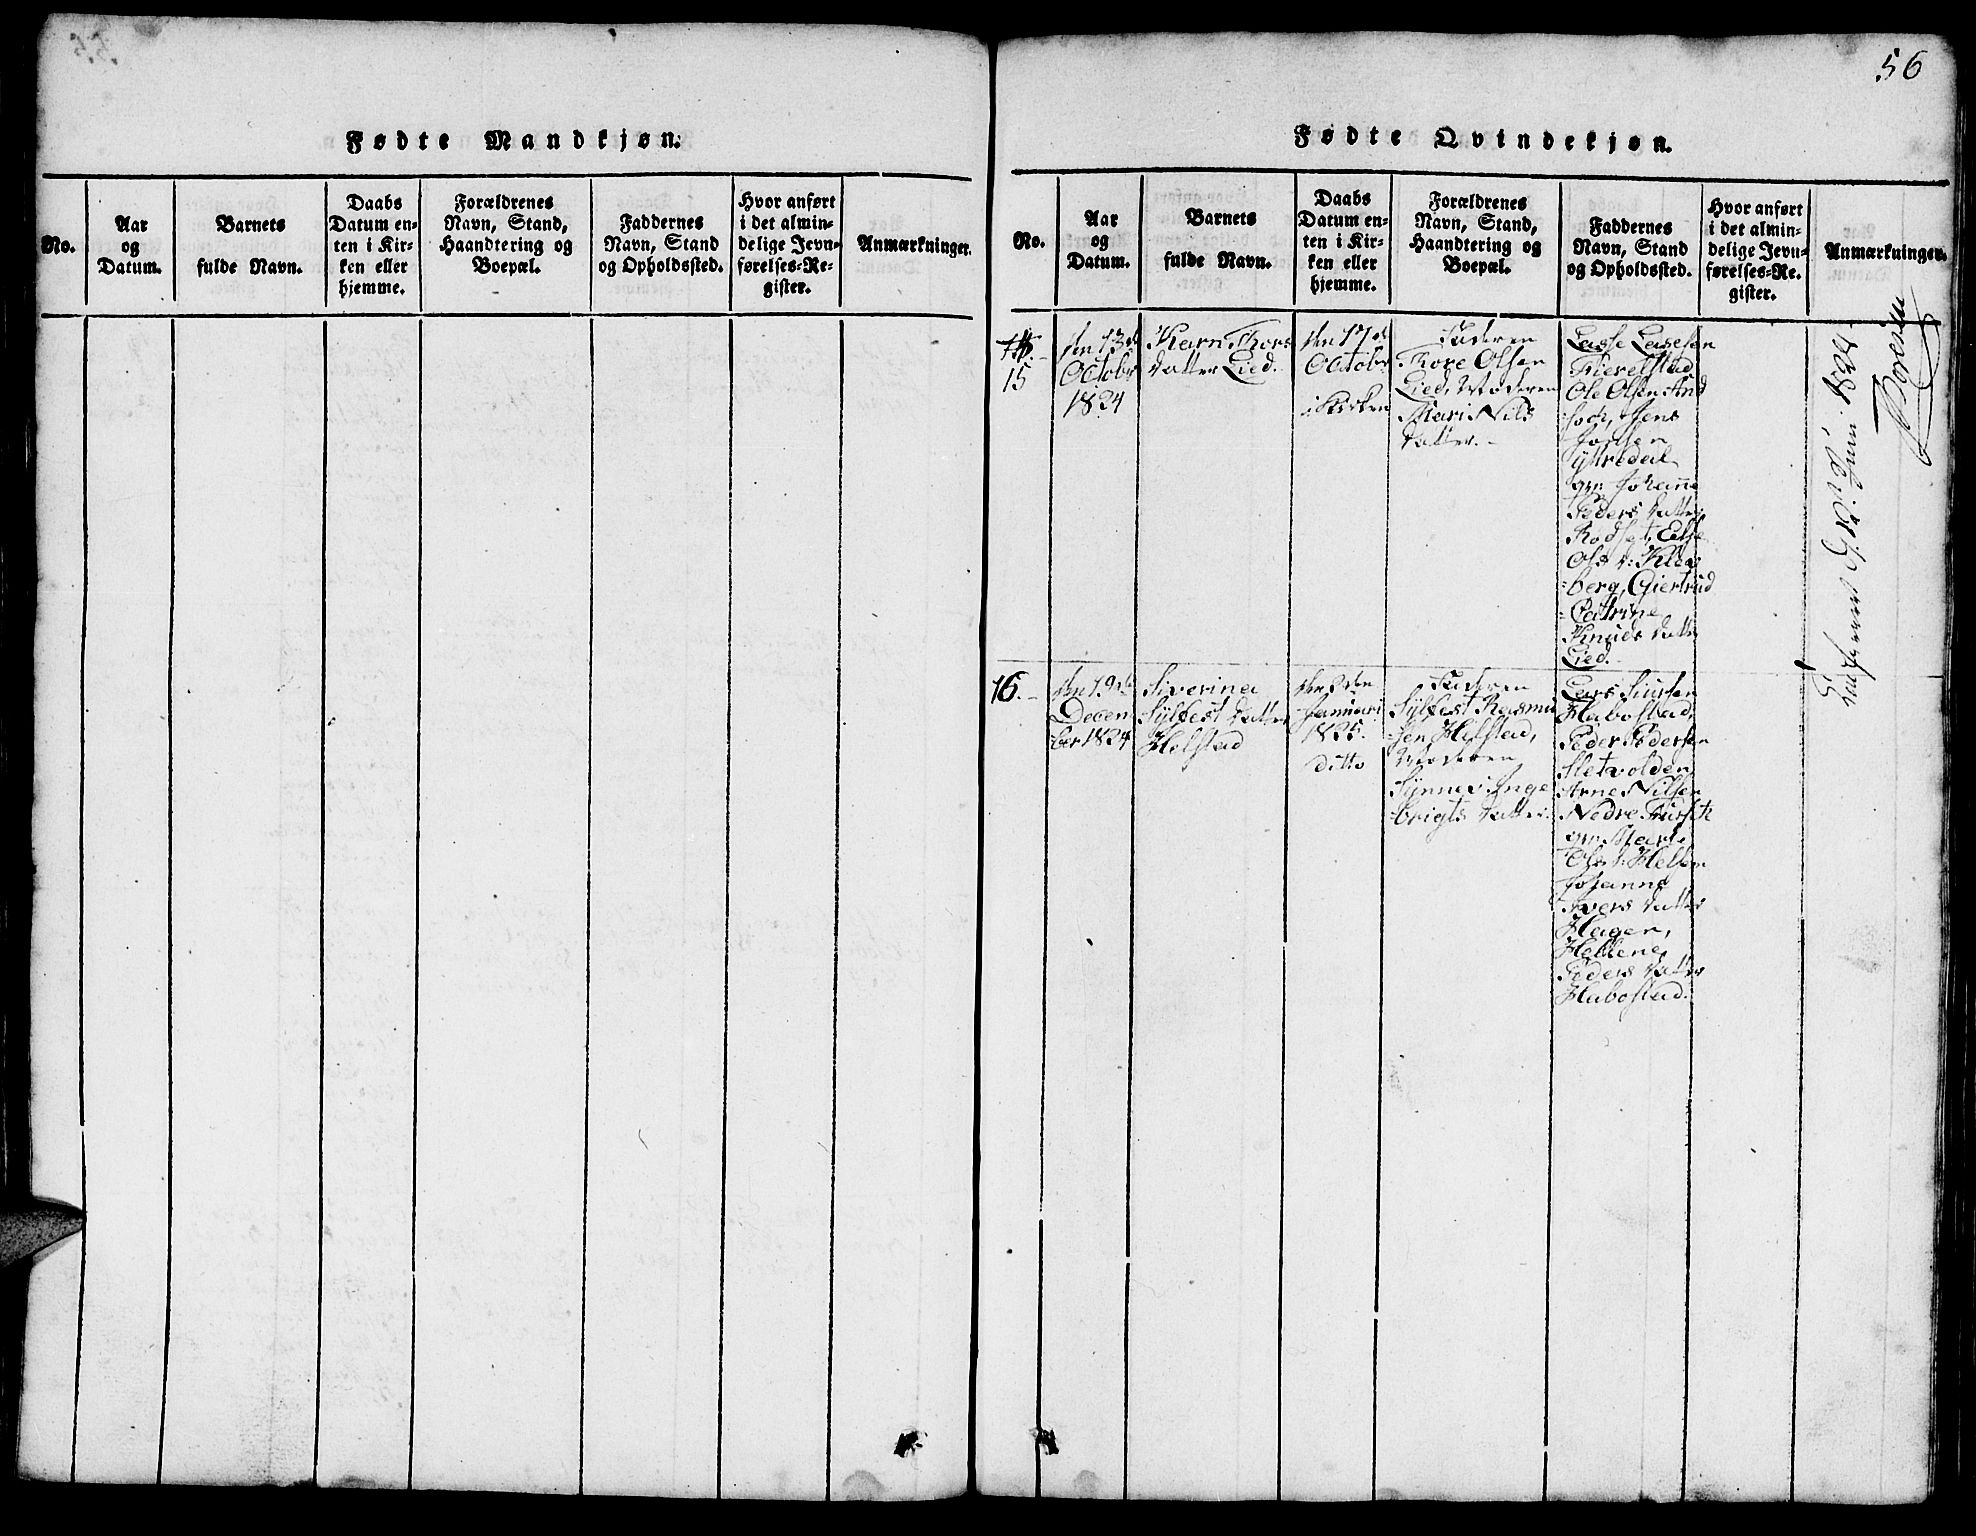 56
Fødte Mandkjøn.
No.
Aar
og
Datum.
Barnets
fulde Navn.
Daabs
Datum en-
ten i Kir-
ken eller
hjemme.
Forældrenes
Navn, Stand,
Haandtering og
Boepæl.
Faddernes
Navn, Stand
og Opholdssted.
Hvor anført
i det almin-
delige Jevn-
førelses-Re-
gister.
Anmærkninger.
Fødte Qvindekjøn.
No.
Aar
og
Datum.
Barnets
fulde Navn.
Daabs
Datum en-
ten i Kir-
ken eller
hjemme.
Forældrenes
Navn, Stand,
Haandtering og
Boepæl.
Faddernes
Navn, Stand
og Opholdssted.
Hvor anført
i det almin-
delige Jevn-
førelses-Re-
gister.
Anmærkninger.
15
den 13de
Octobr
1824
Karn Thors
datter Lied.
den 17de
Octobr
i Kirken
Faderen
Thore Olsen
Lied, Moderen
Mari Nils
datter.-
Lasse Lassesen
Fierelstad
Ole Olsen
Jens
gm Johanne
Peders datter
Rodset, Else
Ols d: Kleo
=berg, Giertrud
Catrine
Knuds datter
Lied.
16.-
den 19de
Decem
ber 1824
Siverina
Sylfest datter
Helstad
den 2den
Januari
1825.
ditto
Faderen
Sylfest Rasmu
sen Helstad,
Moderen
Synnev Inge
=brigts datter.
Lars Siursen
Habostad,
Peder Pedersen
Sletvolden
Arne Nilsen
Nedre
gm Marte
Ols d: Helsem
Johanna
Ivers datter
Hagen,
Hellene
Peders datter
Habostad.
Juni 1824